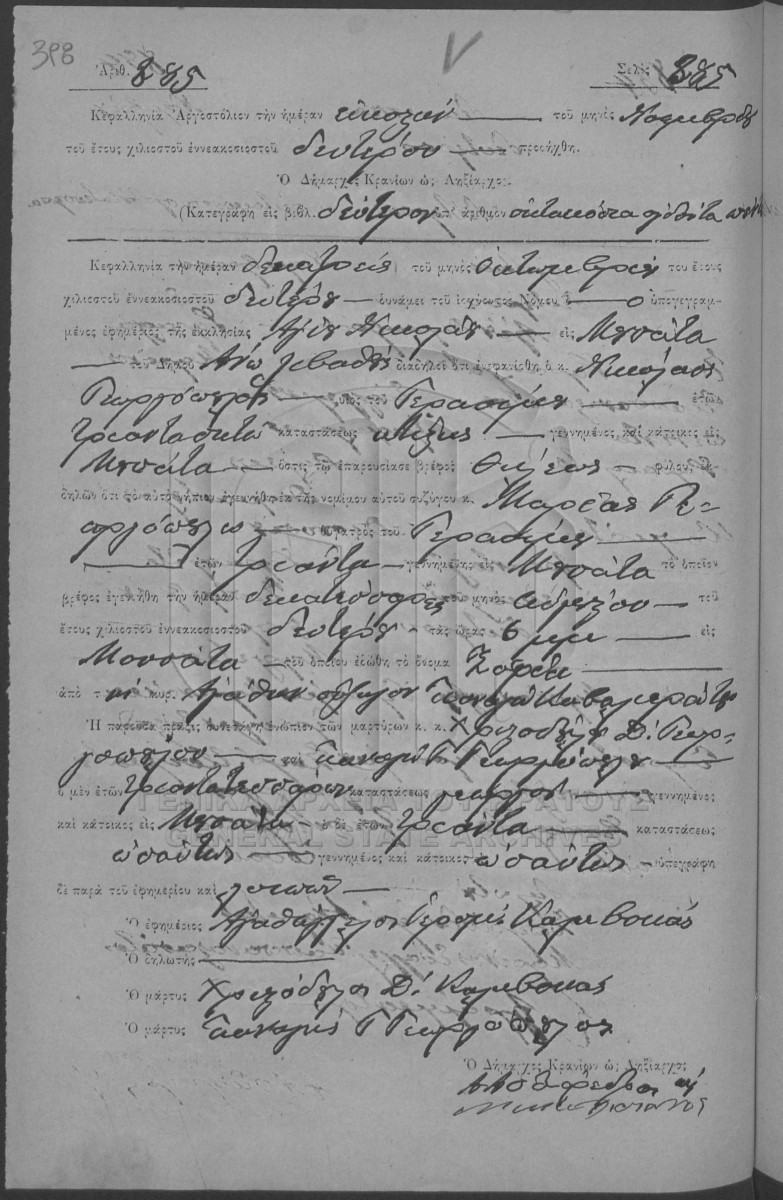 398
Ἀριθ. 885 Σελὶς 885
Κεφαλληνία Ἀργοστόλιον τὴν ἡμέραν εἰκοστὴν τοῦ μηνὸς Νοεμβρίου
τοῦ ἔτους χιλιοστοῦ ἐννεακοσιοστοῦ δευτέρου προσήχθη.
Ὁ Δήμαρχος Κρανίων ὡς Ληξίαρχος.
(Κατεγράφη εἰς βιβλ. δεύτερον ὑπ' ἀριθμὸν ὀκτακόσια ὀγδοῆντα πέντε
Κεφαλληνία τὴν ἡμέραν δεκατρεῖς τοῦ μηνὸς Ὀκτωμβρίου του ἔτους
χιλιοστοῦ ἐννεακοσιοστοῦ δευτέρου δυνάμει τοῦ ἰσχύοντος Νόμου ὁ ὑπογεγραμ-
μένος ἐφημέριος τῆς ἐκκλησίας Ἁγίου Νικολάου εἰς Μουσάτα
τοῦ Δήμου Ἄνω Λιβαθοῦς διαδηλοῖ ὅτι ἐνεφανίσθη ὁ κ. Νικόλαος
Γεωργόπουλος υἱὸς τοῦ Γερασίμου ἐτῶν
τριανταοκτὼ καταστάσεως κτίστης γεννημένος καὶ κάτοικος εἰς
Μουσάτα ὅστις τῷ ἐπαρουσίασε βρέφος θήλεως φύλου, ἐκ-
δηλῶν ὅτι τὸ αὐτὸ νήπιον ἐγεννήθη ἐκ τῆς νομίμου αὐτοῦ συζύγου κ. Μαρίας Γε-
ωργοπούλου θυγατρὸς τοῦ Γερασίμου
ἐτῶν τριάντα γεννημένης εἰς Μουσάτα τὸ ὁποῖον
βρέφος ἐγεννήθη τὴν ἡμέραν δεκατέσσαρες τοῦ μηνὸς Ἀπριλίου τοῦ
ἔτους χιλιοστοῦ ἐννεακοσιοστοῦ δευτέρου τὰς ὥρας 6 μμ εἰς
Μουσάτα τοῦ ὁποίου ἐδόθη τὸ ὄνομα Σοφία
ἀπὸ τὴν κυρ. Ἀγάθην σύζυγον Παναγῆ Καβαλιεράτου
Ἡ παροῦσα πρᾶξις συνετάχθη ἐνώπιον τῶν μαρτύρων κ. κ. Χριστοδούλου Δ. Γεωρ-
γοπούλου καὶ Παναγῆ Γ Γεωργοπούλου
ὁ μὲν ἐτῶν τριαντατεσσάρων καταστάσεως γεωργοῦ γεννημένος
καὶ κάτοικος εἰς Μουσάτα ὁ δὲ ἐτῶν τριάντα καταστάσεως
ὡσαύτως γεννημένος καὶ κάτοικος ὡσαύτως ὑπεγράφη
δὲ παρὰ τοῦ ἐφημερίου καὶ λοιπῶν
Ὁ ἐφημέριος Ἀγαθάγγελος Καμβυσᾶς
Ὁ δηλωτὴς
Ὁ μάρτυς Χριστόδουλος Δ.
Ὁ μάρτυς Παναγῆς Γ Γεωργόπουλος
Ὁ Δήμαρχος Κρανίων ὡς Ληξίαρχος
ΓΕΝΙΚΑ ΑΡΧΕΙΑ ΤΟΥ ΚΡΑΤΟΥΣ
GENERAL STATE ARCHIVES